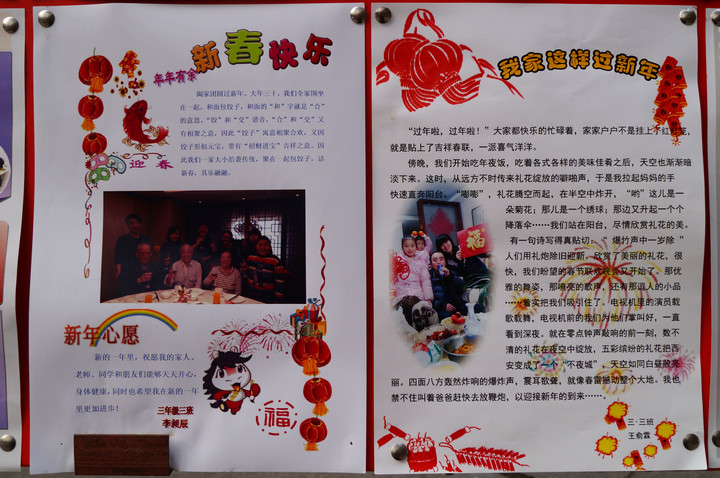 新春快乐
年年有余
阖家团圆过新年。大年三十，我们全家围坐
在一起，和面包饺子，和面的“和”字就是“合”
的意思，“饺”和“交”谐音，“合”和“交”又
有相聚之意，因此“饺子”寓意相聚合欢，又因
饺子形似元宝，带有“招财进宝”吉祥之意。因
此我们一家大小沿袭传统，聚在一起包饺子，话
新春，其乐融融。
迎春
新年心愿
新的一年里，祝愿我的家人、
老师、同学和朋友们能够天天开心，
身体健康，同时也希望我在新的一年
里更加进步！
三年级三班
李昶辰
福
我家这样过新年
“过年啦，过年啦！”大家都快乐的忙碌着，家家户户不是挂上了红灯笼，
就是贴上了吉祥春联，一派喜气洋洋。
傍晚，我们开始吃年夜饭，吃着各式各样的美味佳肴之后，天空也渐渐暗
淡下来。这时，从远方不时传来礼花绽放的噼啪声，于是我拉起妈妈的手
快速直奔阳台。“嘭嘭”，礼花腾空而起，在半空中炸开，“哟”这儿是一
朵菊花；那儿是一个绣球；那边又升起一个个
降落伞……我们站在阳台，尽情欣赏礼花的美。
有一句诗写得真贴切，“爆竹声中一岁除”
人们用礼炮除旧迎新。欣赏了美丽的礼花，很
快，我们盼望的春节联欢晚会又开始了。那优
雅的舞姿，那嘹亮的歌声，还有那逗人的小品
……着实把我们吸引住了。电视机里的演员载
歌载舞，电视机前的我们为他们掌叫好，一直
看到深夜。就在零点钟声敲响的前一刻，数不
清的礼花在夜空中绽放，五彩缤纷的礼花把西
安变成了一座“不夜城”，天空如同白昼般亮
丽。四面八方轰然炸响的爆炸声，震耳欲聋，就像春雷撼动整个大地。我也
禁不住叫着爸爸赶快去放鞭炮，以迎接新年的到来……
三·三班
王俞霖
福